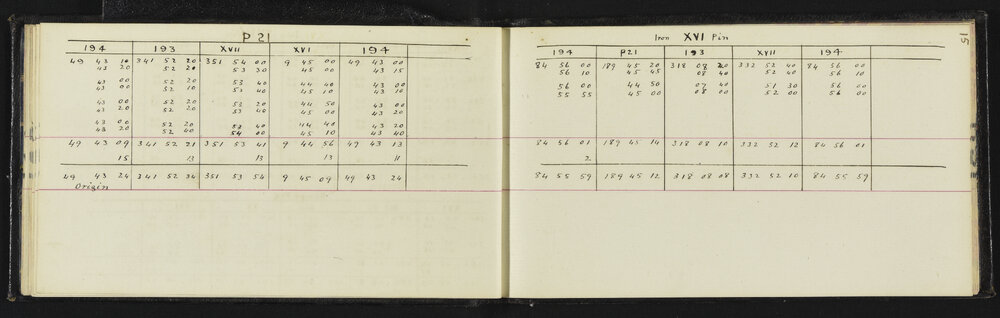 P 21
194 193 XVII XVI 194
49 43 10 341 52 20 351 54 00 9 45 00 49 43 00
43 20 52 20 53 30 45 00 43 15
43 00 52 20 53 40 44 40 43 00
43 00 52 10 53 40 45 10 43 10
43 00 52 20 53 20 44 50 43 00
43 20 52 20 53 40 45 00 43 20
43 00 52 20 53 40 44 40 43 20
43 20 52 40 54 00 45 10 43 40
49 43 09 341 52 21 351 53 41 9 44 56 49 43 13
15 13 13 13 11
49 43 24 341 52 34 351 53 54 9 45 09 49 43 24
Origin
15
Iron XVI Pin
194 P21 193 XVII 194
84 56 00 189 45 20 318 08 20 332 52 40 84 56 00
56 10 45 45 08 40 52 40 56 10
56 00 44 50 07 40 51 30 56 00
55 55 45 00 08 00 52 00 56 00
84 56 01 189 45 14 318 08 10 332 52 12 84 56 01
2
84 55 59 189 45 12 318 08 08 332 52 10 84 55 59